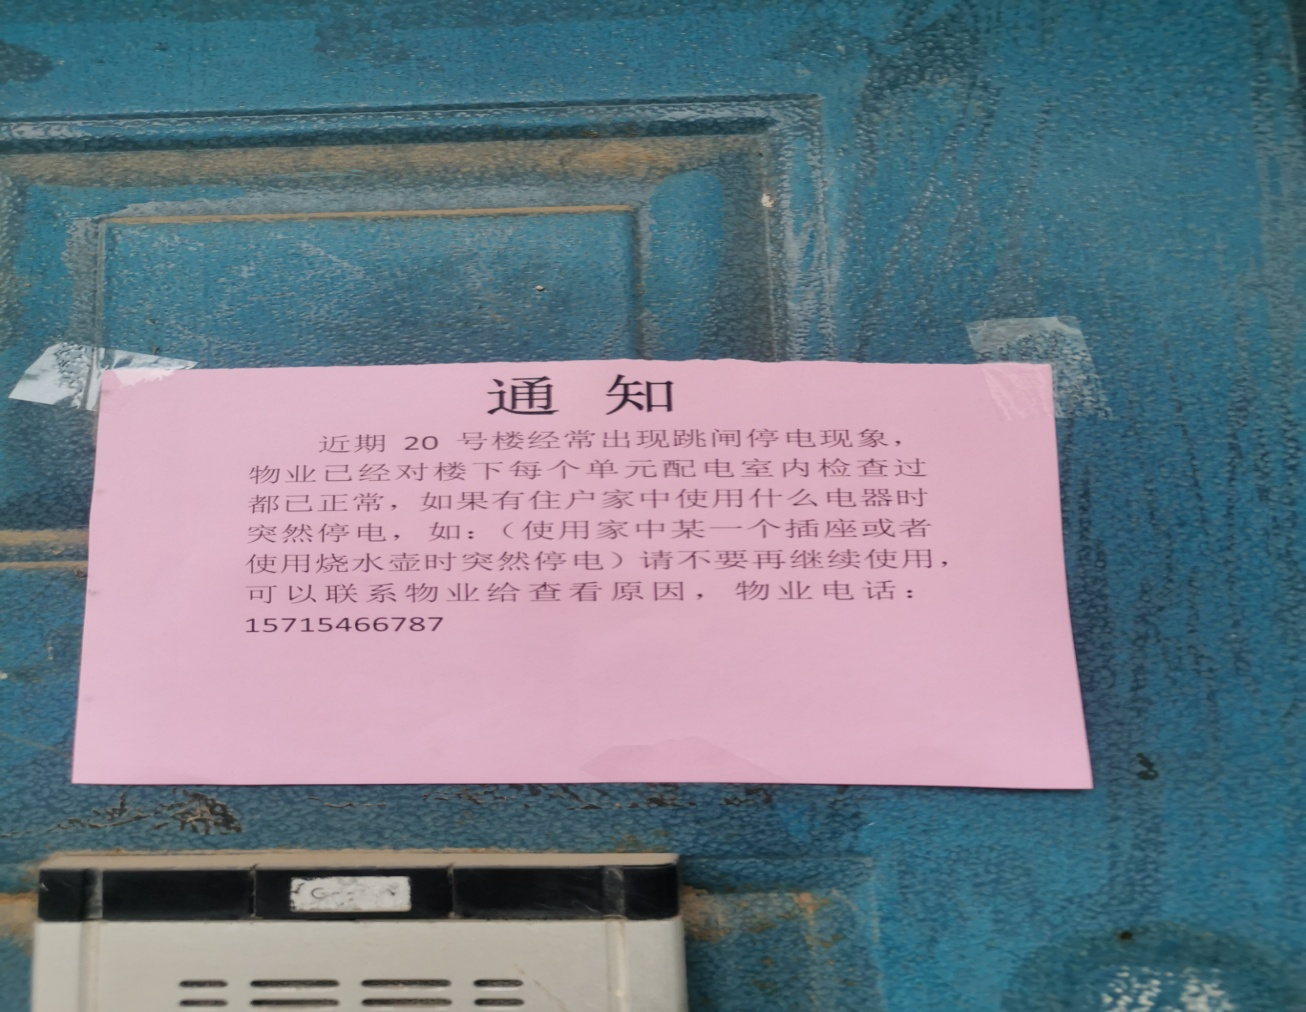 通 知
近期 20 号楼经常出现跳闸停电现象，
物业已经对楼下每个单元配电室内检查过
都已正常，如果有住户家中使用什么电器时
突然停电，如：（使用家中某一个插座或者
使用烧水壶时突然停电）请不要再继续使用，
可以联系物业给查看原因，物业电话：
15715466787